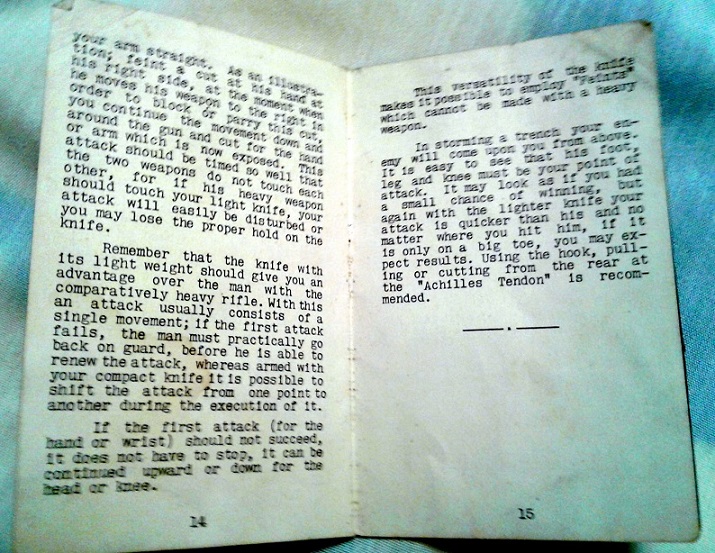 your arm straight. As an illustra-
tion; feint a cut at his hand at
his right side, at the moment when
he moves his weapon to the right in
order to block or parry this cut,
you continue the movement down and
around the gun and cut for the hand
or arm which is now exposed. This
attack should be timed so well that
the two weapons do not touch each
other, for if his heavy weapon
should touch your light knife, your
attack will easily be disturbed or
you may lose the proper hold on the
knife.
Remember that the knife with
its light weight should give you an
advantage over the man with the
comparatively heavy rifle. With this
an attack usually consists of a
single movement; if the first attack
fails, the man must practically go
back on guard, before he is able to
renew the attack, whereas armed with
your compact knife it is possible to
shift the attack from one point to
another during the execution of it.
If the first attack (for the
hand or wrist) should not succeed,
it does not have to stop, it can be
continued upward or down for the
head or knee.
14
This versatility of the knife
makes it possible to employ "Feints"
which cannot be made with a heavy
weapon.
In storming a trench your en-
emy will come upon you from above.
It is easy to see that his foot,
leg and knee must be your point of
attack. It may look as if you had
a small chance of winning, but
again with the lighter knife your
attack is quicker than his and no
matter where you hit him, if it
is only on a big toe, you may ex-
pect results. Using the hook, pull-
ing or cutting from the rear at
the "Achilles Tendon" is recom-
mended.
15